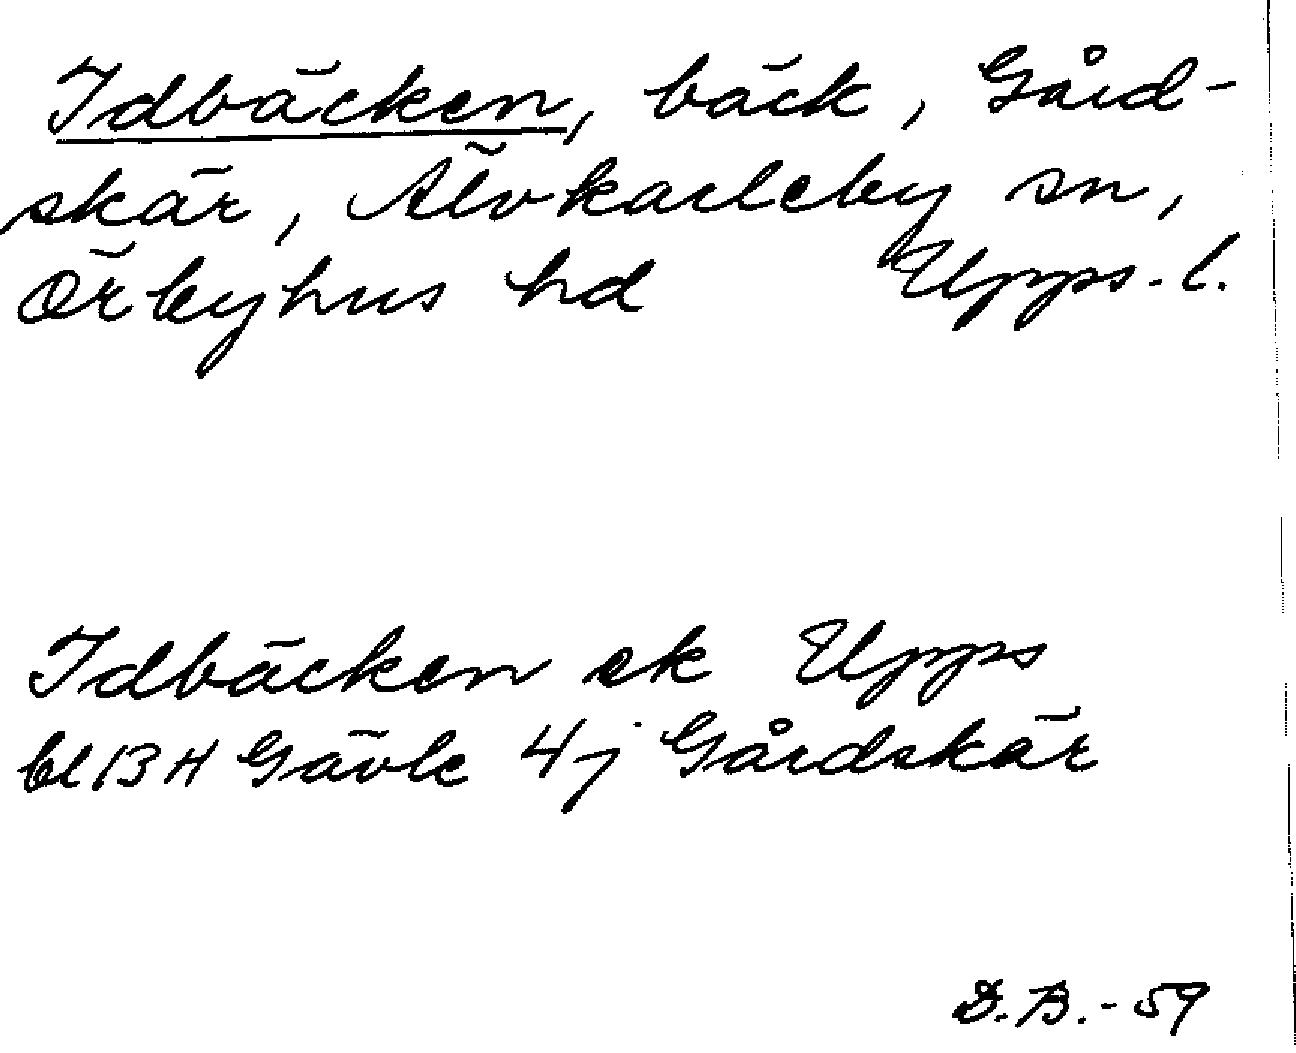 Idbäcken, bäck, Gård-
skär, Älvkarleby sn,
Örbyhus hd Upps. l.
Idbäcken ek Upps
bl 13 H Gävle 4j Gårdskär
D.B. - 59